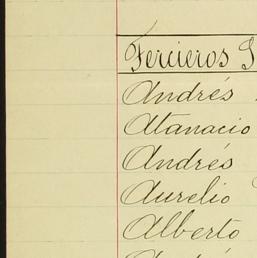 Tercieros
Andrés
Atanacio
Andrés
Aurelio
Alberto